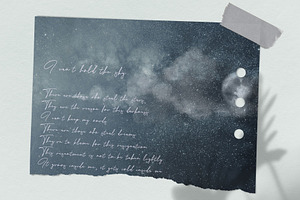 I can't hold the sky
There are those who steal the stars,
They are the reason for this darkness
I can't keep my words
There are those who steal dreams
They're to blame for this resignation
This resentment is not to be taken lightly
It grows inside me, it gets cold inside me